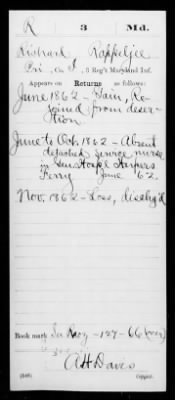 R 3 Md.
Richard Rappeljee
Pvt, Co. I, 3 Reg't Maryland Inf.
Appears on Returns as follows:
June 1862 – Gain, Re-
joined from deser-
tion
June to Oct. 1862 – Absent
detached service nurse
in Gen. Hospl Harpers
Ferry June 62.
Nov. 1862 – Loss, disch'g'd
Book mark: 127-66 (over)
A H Davis
(546) Copyist.